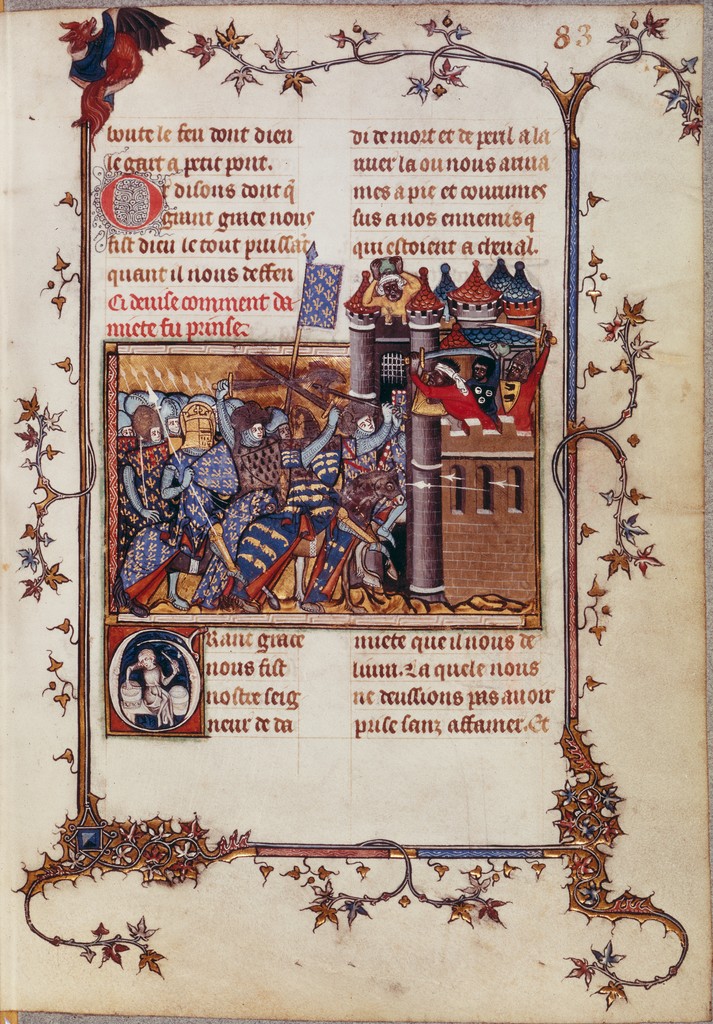 83
boute le feu dont dieu
le gart a petit pont.
Or disons dont q̃
grant grace nous
fist dieu le tout puissãt
quant il nous deffen
Ci deuise comment da
miete fu prinse
di de mort et de peril a la
riuer la ou nous arriua
mes a pie et courumes
sus a nos ennemis q
qui estoient a cheual.
Grant grace
nous fist
nostre seig
neur de da
miete que il nous de
liura. La quele nous
ne deussions pas auoir
prise sanz affamer. Et